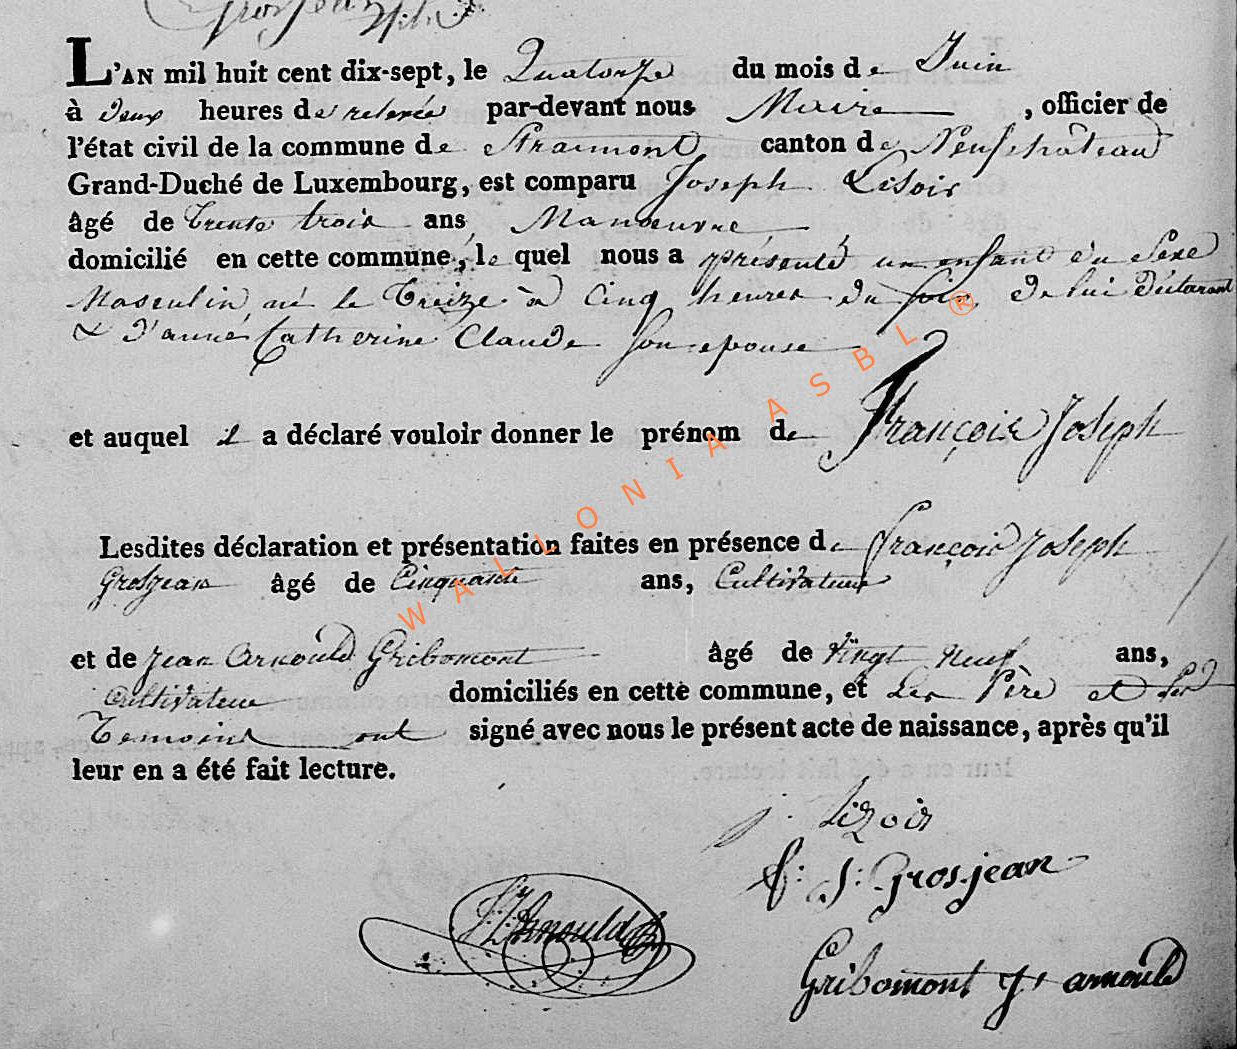 Grosjean
L'AN mil huit cent dix-sept, le Quatorze du mois de Juin
à deux heures de relevée par-devant nous Maire , officier de
l'état civil de la commune de Straimont canton de Neufchâteau
Grand-Duché de Luxembourg, est comparu Joseph Lisoir
âgé de Trente trois ans, Manoeuvre
domicilié en cette commune, le quel nous a présenté un enfant du Sexe
Masculin, né le Treize à Cinq heures du soir, de lui déclarant
& d'anne Catherine Claude Son epouse
et auquel il a déclaré vouloir donner le prénom de François Joseph
Lesdites déclaration et présentation faites en présence de françois Joseph
Grosjean âgé de Cinquante ans, Cultivateur
et de Jean Arnould Gribomont âgé de Vingt Neuf ans,
Cultivateur domiciliés en cette commune, et Les Père et les
Temoins ont signé avec nous le présent acte de naissance, après qu'il
leur en a été fait lecture.
j. lizoir
f: J: Grosjean
Arnould
Gribomont J arnould
WALLONIA ASBL ®